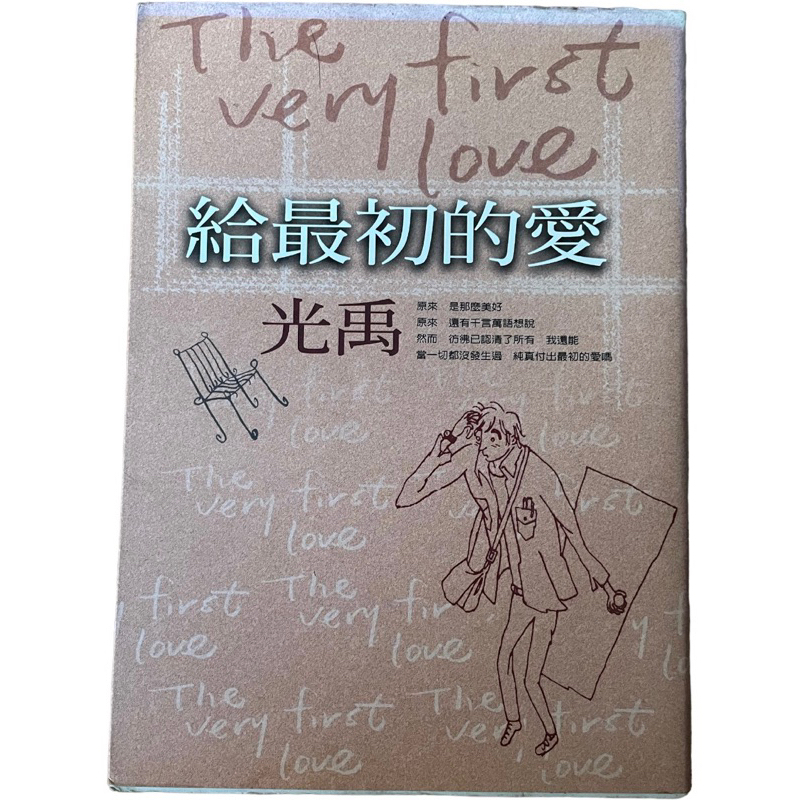 The
very first
love
給最初的愛
光禹
原來 是那麼美好
原來 還有千言萬語想說
然而 彷彿已認清了所有 我還能
當一切都沒發生過 純真付出最初的愛嗎
The
very first
love
The
very first
love
The
very first
love
The
very fir
love
y first
love
The
very first
love
The
very first
love